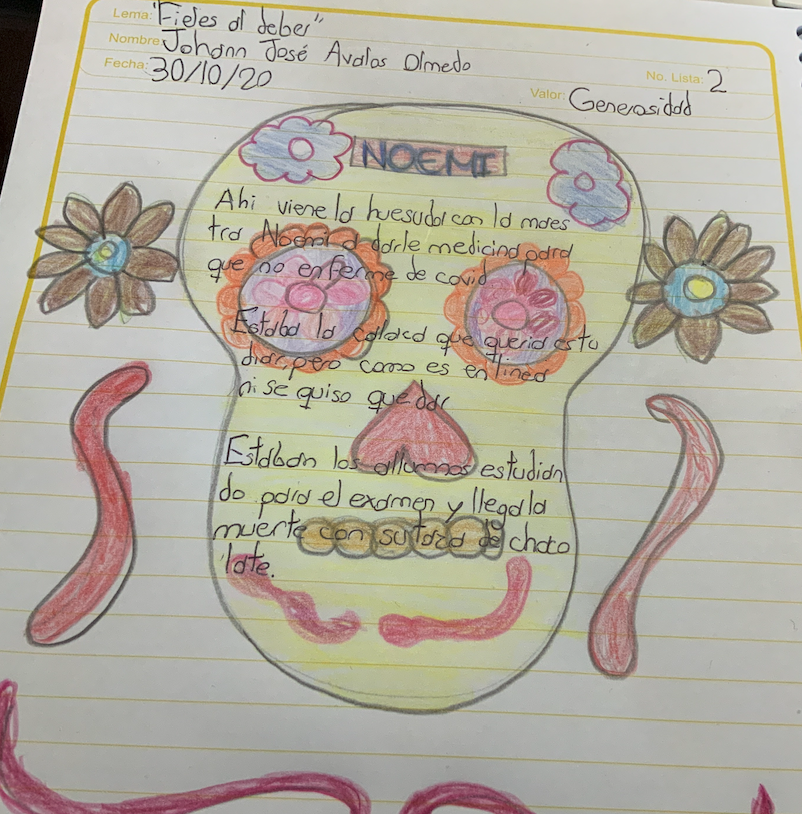 Lema: "Fieles al deber"
Nombre: Johann José Avalos Olmedo
Fecha: 30/10/20
No. Lista: 2
Valor: Generosidad
NOEMI
Ahi viene la huesuda con la maes
tra Noemi a darle medicina para
que no enferme de covid
Estaba la calaca que queria estu
diar, pero como es en linea
ni se quiso quedar
Estaban los allumnos estudian
do para el examen y llega la
muerte con su taza de choco
late.